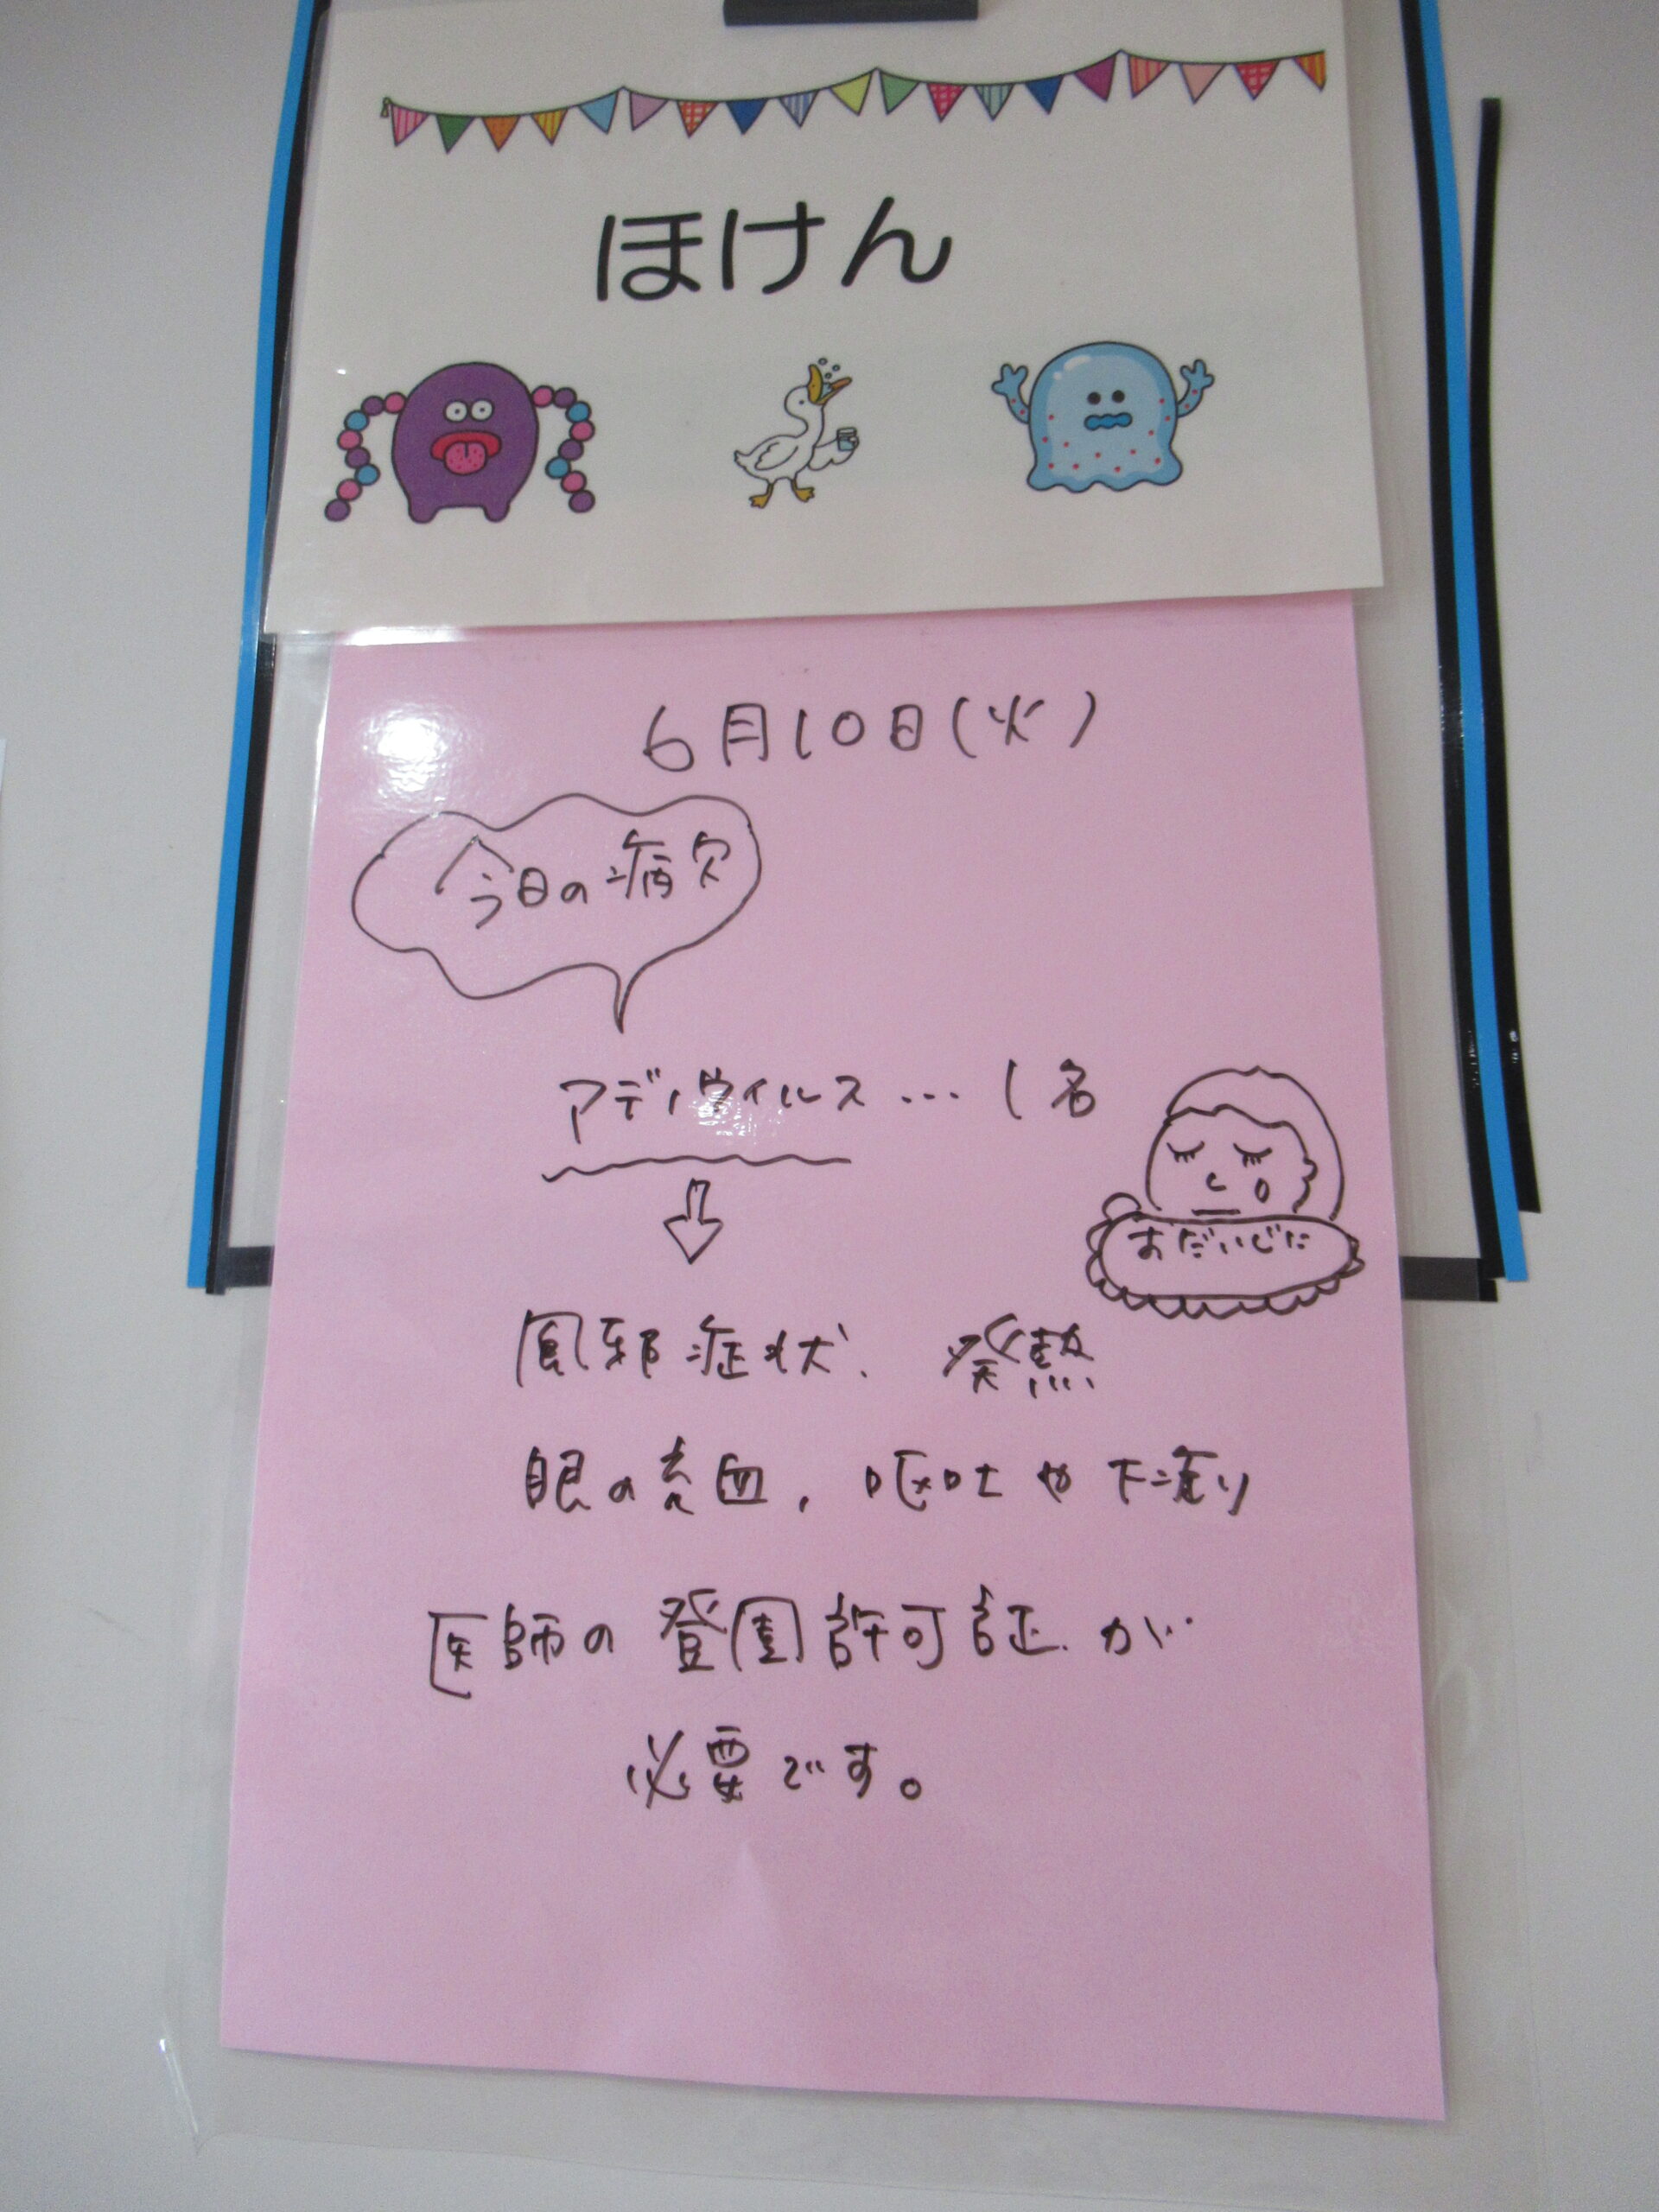 ほけん
6月10日(火)
今日の病欠
アデノウイルス…1名
おだいじに
風邪症状、発熱
眼の充血、嘔吐や下痢
医師の登園許可証が
必要です。